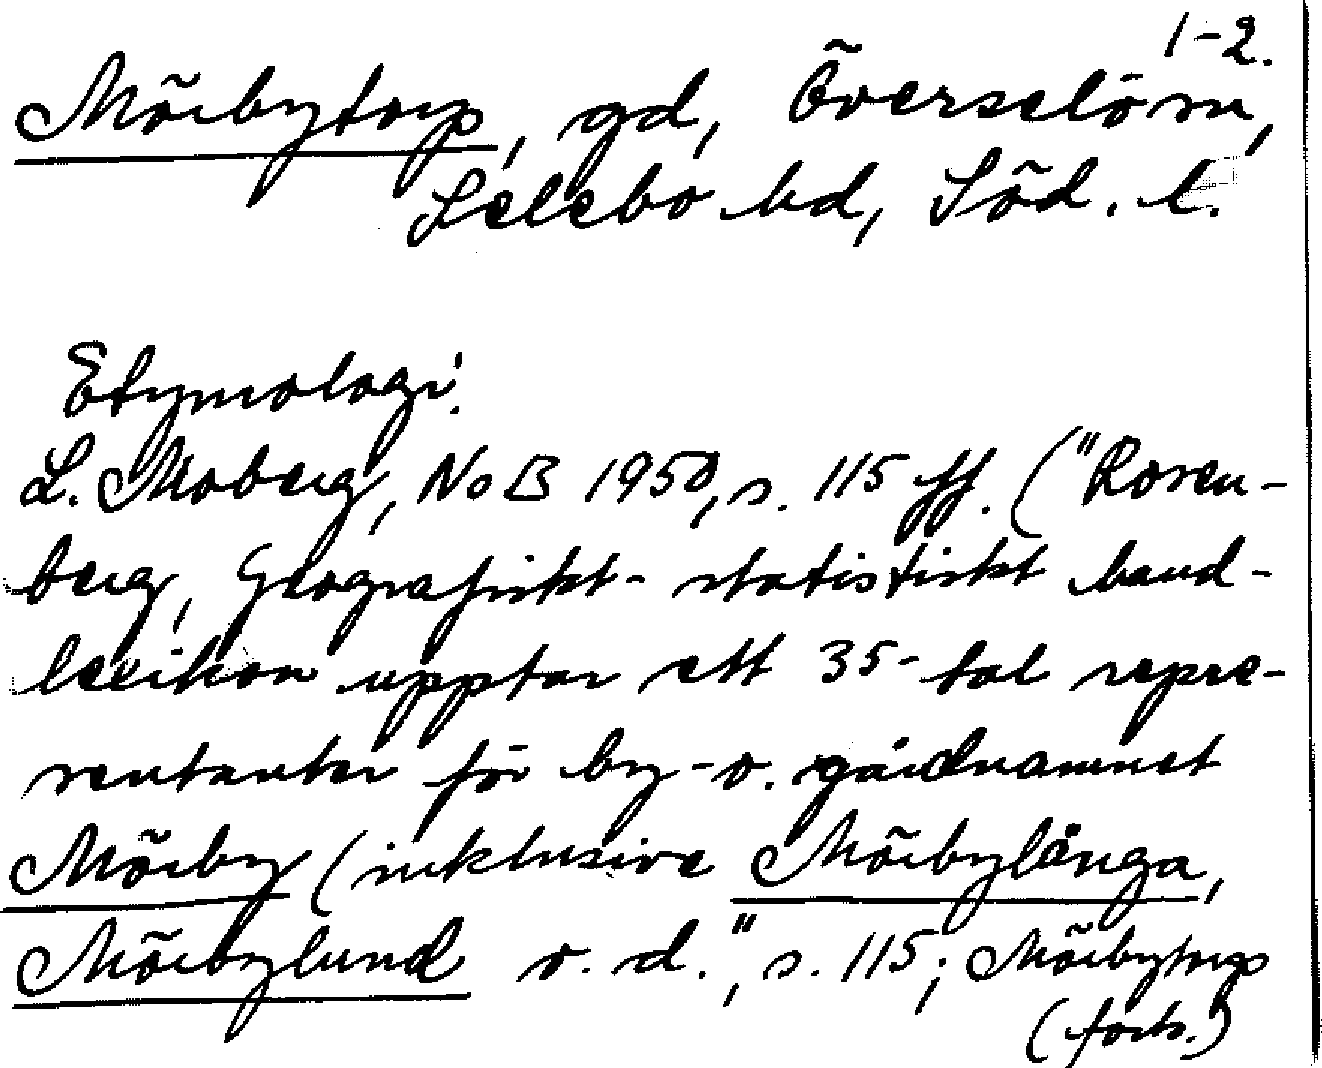 1-2.
Mörbytorp, gd, Överselö sn,
Selebo hd, Söd. l.
Etymologi.
L. Moberg, NoB 1950, s. 115 ff. ("Rosen-
berg, Geografiskt-statistiskt hand-
lexikon upptar ett 35-tal repre-
sentanter för by- o. gårdnamnet
Mörby (inklusive Mörbylånga,
Mörbylund o. d.", s. 115; Mörbytorp
(forts.)